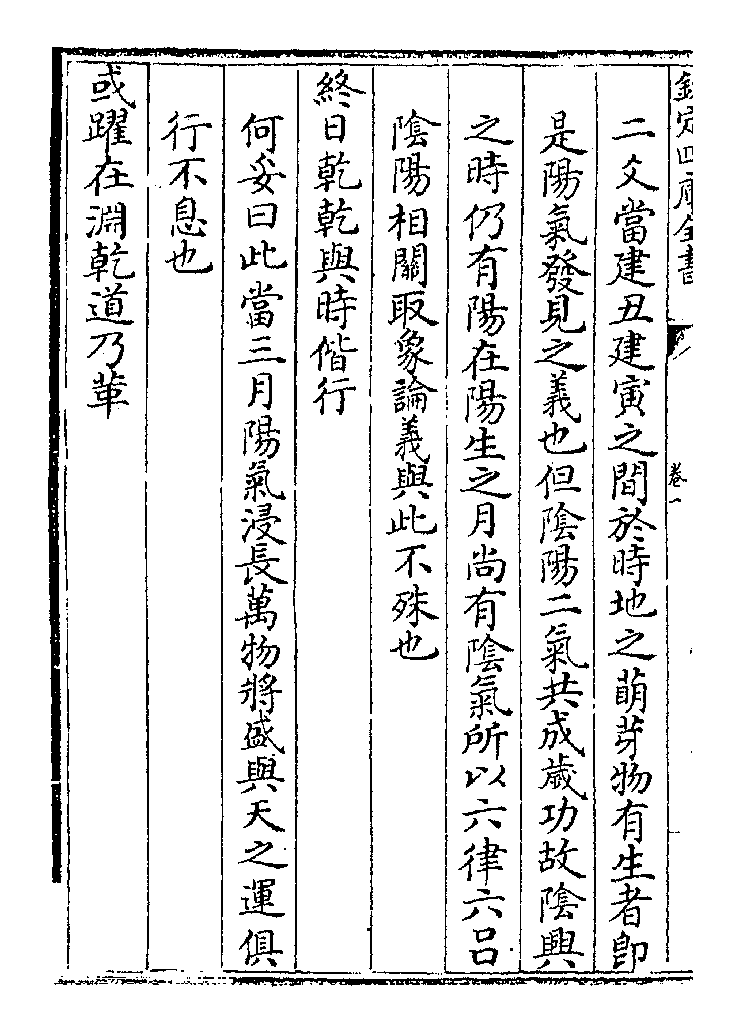 欽定四庫全書
卷一
二爻當建丑建寅之間於時地之萌芽物有生者即
是陽氣發見之義也但陰陽二氣共成歲功故陰興
之時仍有陽在陽生之月尚有陰氣所以六律六呂
陰陽相關取象論義與此不殊也
終日乾乾與時偕行
何妥曰此當三月陽氣浸長萬物將盛與天之運俱
行不息也
或躍在淵乾道乃革